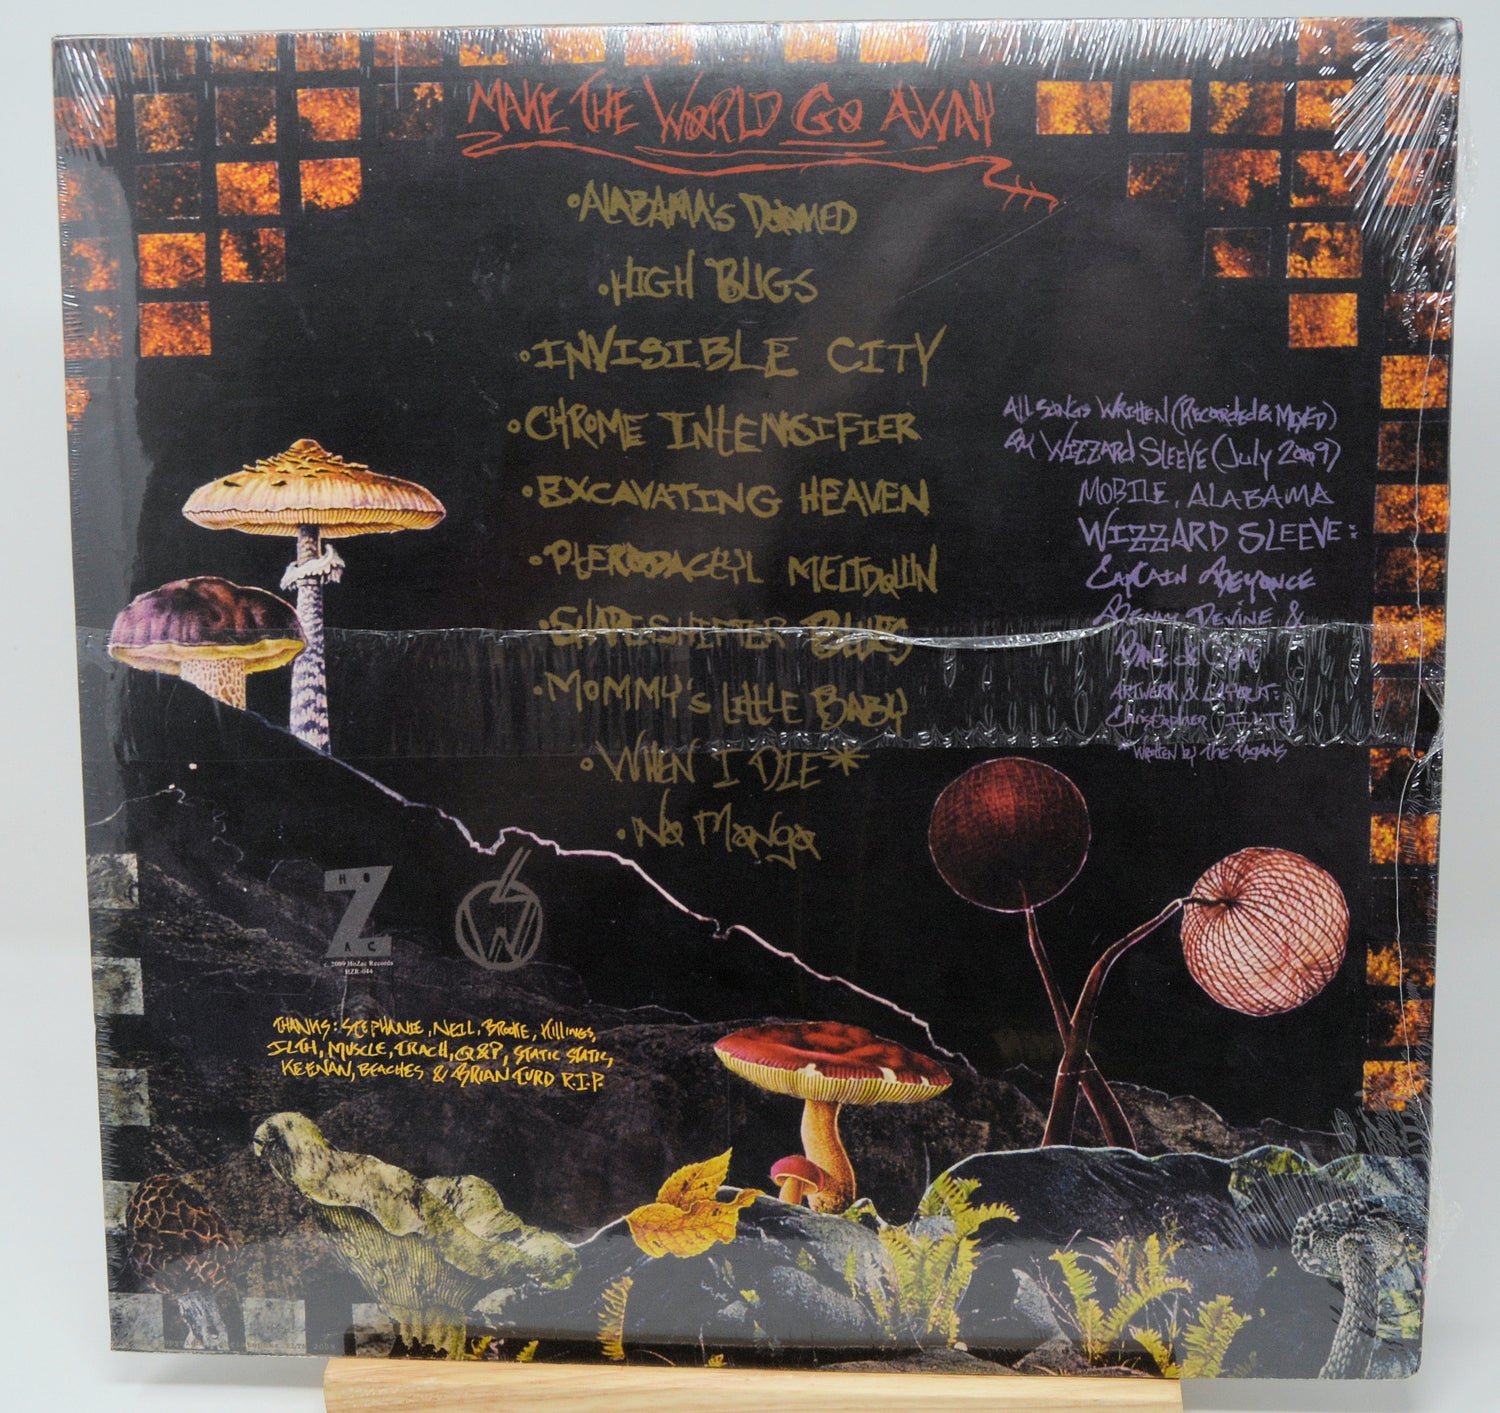 MAKE THE WORLD GO AWAY
•ALABAMA'S DOOMED
•HIGH BUGS
•INVISIBLE CITY
•CHROME INTENSIFIER
•EXCAVATING HEAVEN
•PTERODACTYL MELTDOWN
•SHAPESHIFTER BLUES
•MOMMY'S LITTLE BABY
•WHEN I DIE*
•NO MONGO
ALL SONGS WRITTEN (RECORDED & MIXED)
BY WIZZARD SLEEVE (JULY 2009)
MOBILE, ALABAMA
WIZZARD SLEEVE:
CAPTAIN BEYONCE
BENNY DEVINE &
ARTWORK & LAYOUT:
CHRISTOPHER
*WRITTEN BY THE PAGANS
HO
Z
AC
c 2009 HoZac Records
HZR-044
THANKS: STEPHANIE, NEIL, BROOKE, KILLINGS,
JLTH, MUSCLE, TRACH, Q&P, STATIC STATIC,
KEENAN, BEACHES & BRIAN TURD R.I.P.